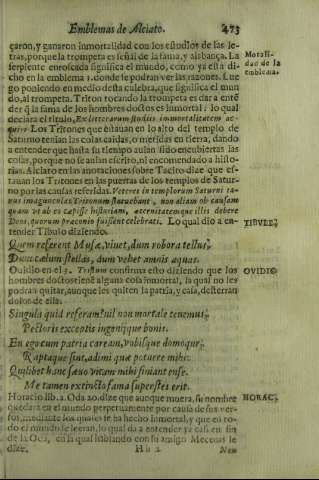 Emblemas de Alciato. 473
çaron, y ganaron inmortalidad con los estudios de las le-
tras, porque la trompeta es señal de la fama, y alabança. La
Morali-
dad de la
emblema.
serpiente enroscada significa el mundo, como ya està di-
cho en la emblema 1. donde se podran ver las razones. Lue
go poniendo en medio desta culebra, que significa el mun
do, al trompeta. Triton tocando la trompeta es dar a entē
der q̃ la fama de los hombres doctos es inmortal: lo qual
declara el titulo, Ex litterarum studijs immortalitatem ac-
quiri. Los Tritones que estauan en lo alto del templo de
Saturno tenian las colas caidas, o metidas en tierra, dando
a entender que hasta su tiempo auian sido escondidas las
cosas, porque no se auian escrito, ni encomendado a histo-
rias. Alciato en las anotaciones sobre Tacito dize que es-
tauan los Tritones en las puertas de los templos de Satur-
no por las causas referidas. Veteres in templorum Saturni ta-
nus imagunculas Tritonum statuebant, non aliam ob causam
quam vt ab eo cepisse historiam, aeternitatemque illis debere
Deos, quorum praeconio fuissent celebrati. Lo qual dio a en-
TIBVLL.
tender Tibulo diziendo.
Quem referent Musæ, viuet, dum robora tellus,
Dum cælum stellas, dum vehet amnis aquas.
Ouidio en el 3. Tristium confirma esto diziendo que los
OVIDIO
hombres doctos tienē alguna cosa inmortal, la qual no les
podran quitar, aunque les quiten la patria, y casa, desterran
dolos de ella.
Singula quid referam? nil non mortale tenemus,
Pectoris exceptis ingenijque bonis.
En ego cum patria caream, vobisque domoque,
Raptaque sint, adimi quæ potuere mihi.
Quilibet hanc sæuo vitam mihi finiant ense.
Me tamen extincto fama superstes erit.
Horacio lib. 2. Oda 20. dize que aunque muera, su nombre
HORAC.
quedarà en el mundo perpetuamente por causa de sus ver-
sos, mediante los quales se ha hecho inmortal, y que en to-
do el mundo se leeran, lo qual da a entender ya casi en fin
de la Oda, en la qual hablando con su amigo Mecenas le
dize.
Hh 2 Non